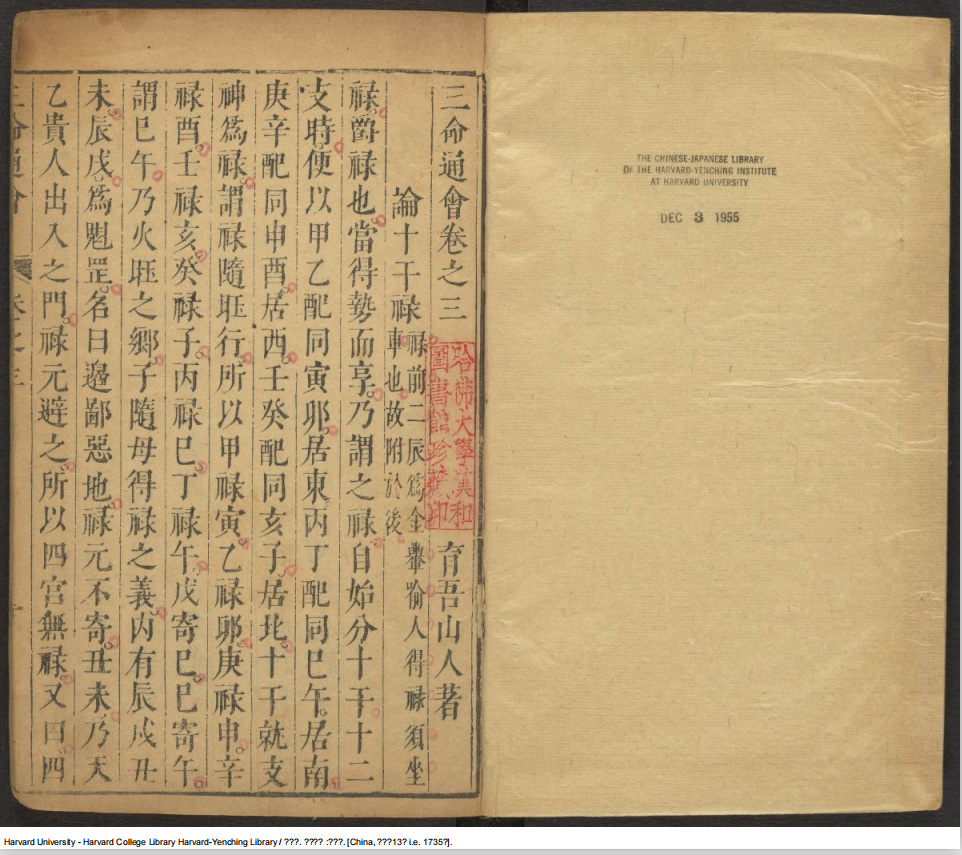 三命通會卷之三
育吾山人著
論十干禄
禄前二辰爲金轝喻人得禄須坐
車也故附於後
禄爵禄也當得勢而享乃謂之禄自始分十干十二
支時便以甲乙配同寅卯居東丙丁配同巳午居南
庚辛配同申酉居西壬癸配同亥子居北十干就支
神爲禄謂禄隨旺行所以甲禄寅乙禄卯庚禄申辛
禄酉壬禄亥癸禄子丙禄巳丁禄午戊寄巳巳寄午
謂巳午乃火旺之鄉子隨母得禄之義内有辰戍丑
未辰戍爲魁罡名曰邊鄙惡地禄元不寄丑未乃天
乙貴人出入之門禄元避之所以四宮無禄又曰四
哈佛大學漢和
圖書館珍藏印
THE CHINESE-JAPANESE LIBRARY
OF THE HARVARD-YENCHING INSTITUTE
AT HARVARD UNIVERSITY
DEC 3 1955
Harvard University - Harvard College Library Harvard-Yenching Library / ???. ???? :???. [China, ???13? i.e. 1735?].